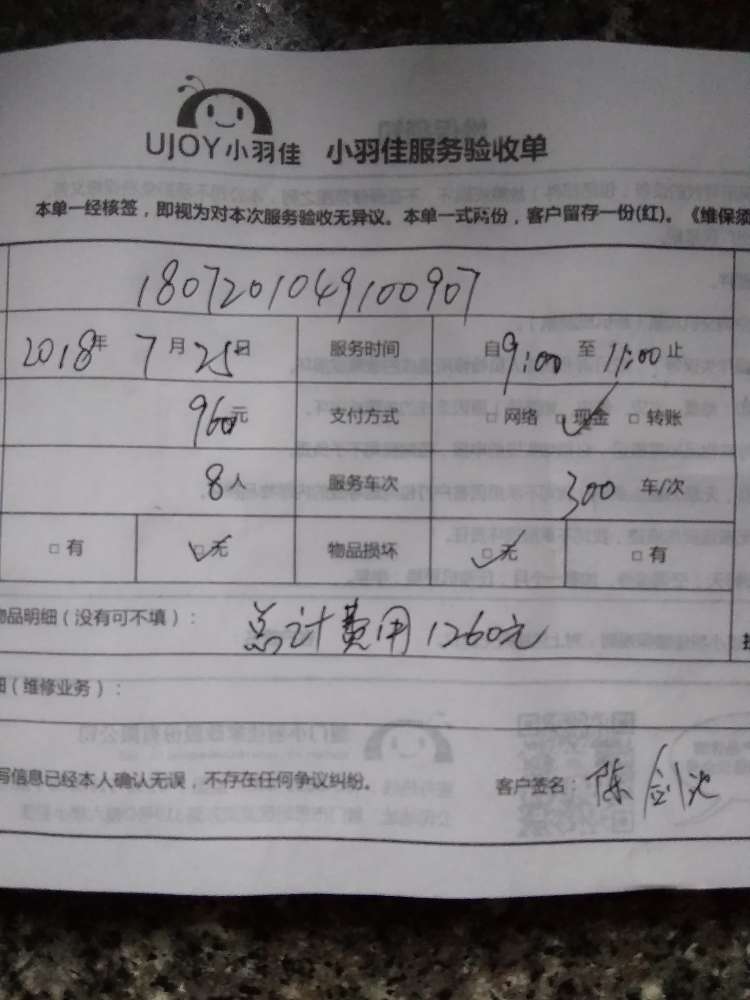 UJOY小羽佳 小羽佳服务验收单
本单一经核签，即视为对本次服务验收无异议。本单一式两份，客户留存一份(红)。《维保须
1807201049100907
2018年 7月 25日 服务时间 自9:00 至 11:00 止
960元 支付方式 □网络 ☑现金 □转账
8人 服务车次 300 车/次
□有 ☑无 物品损坏 ☑无 □有
物品明细（没有可不填）： 总计费用1260元
细（维修业务）：
写信息已经本人确认无误，不存在任何争议纠纷。 客户签名： 陈剑